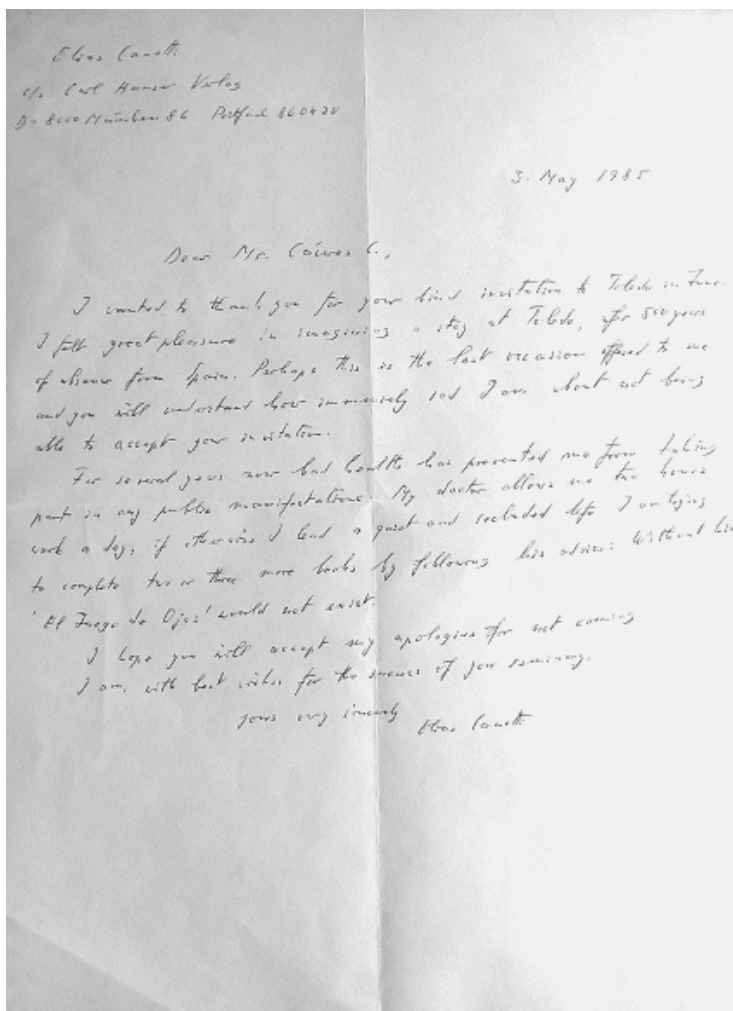 Elias Canetti
c/o Carl Hanser Verlag
D-8000 München 86 Postfach 860420
3. May 1985
Dear Mr. C.,
I wanted to thank you for your kind invitation to Toledo in June.
I felt great pleasure in imagining a stay at Toledo, after 500 years
of absence from Spain. Perhaps this is the last occasion offered to me
and you will understand how immensely sad I am about not being
able to accept your invitation.
For several years now bad health has prevented me from taking
part in any public manifestations. My doctor allows me two hours
work a day, if otherwise I lead a quiet and secluded life. I am trying
to complete two or three more books by following his advice: Without him
'El Juego de Ojos' would not exist.
I hope you will accept my apologies for not coming
I am, with best wishes for the success of your seminary,
yours very sincerely Elias Canetti